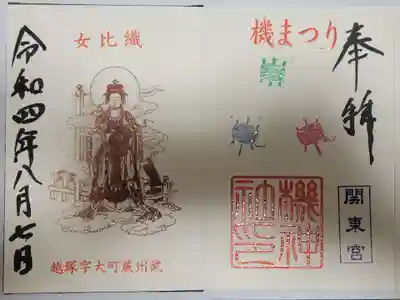 奉拝
機まつり
関東宮
織比女
武州蕨町大字塚越
令和四年八月七日